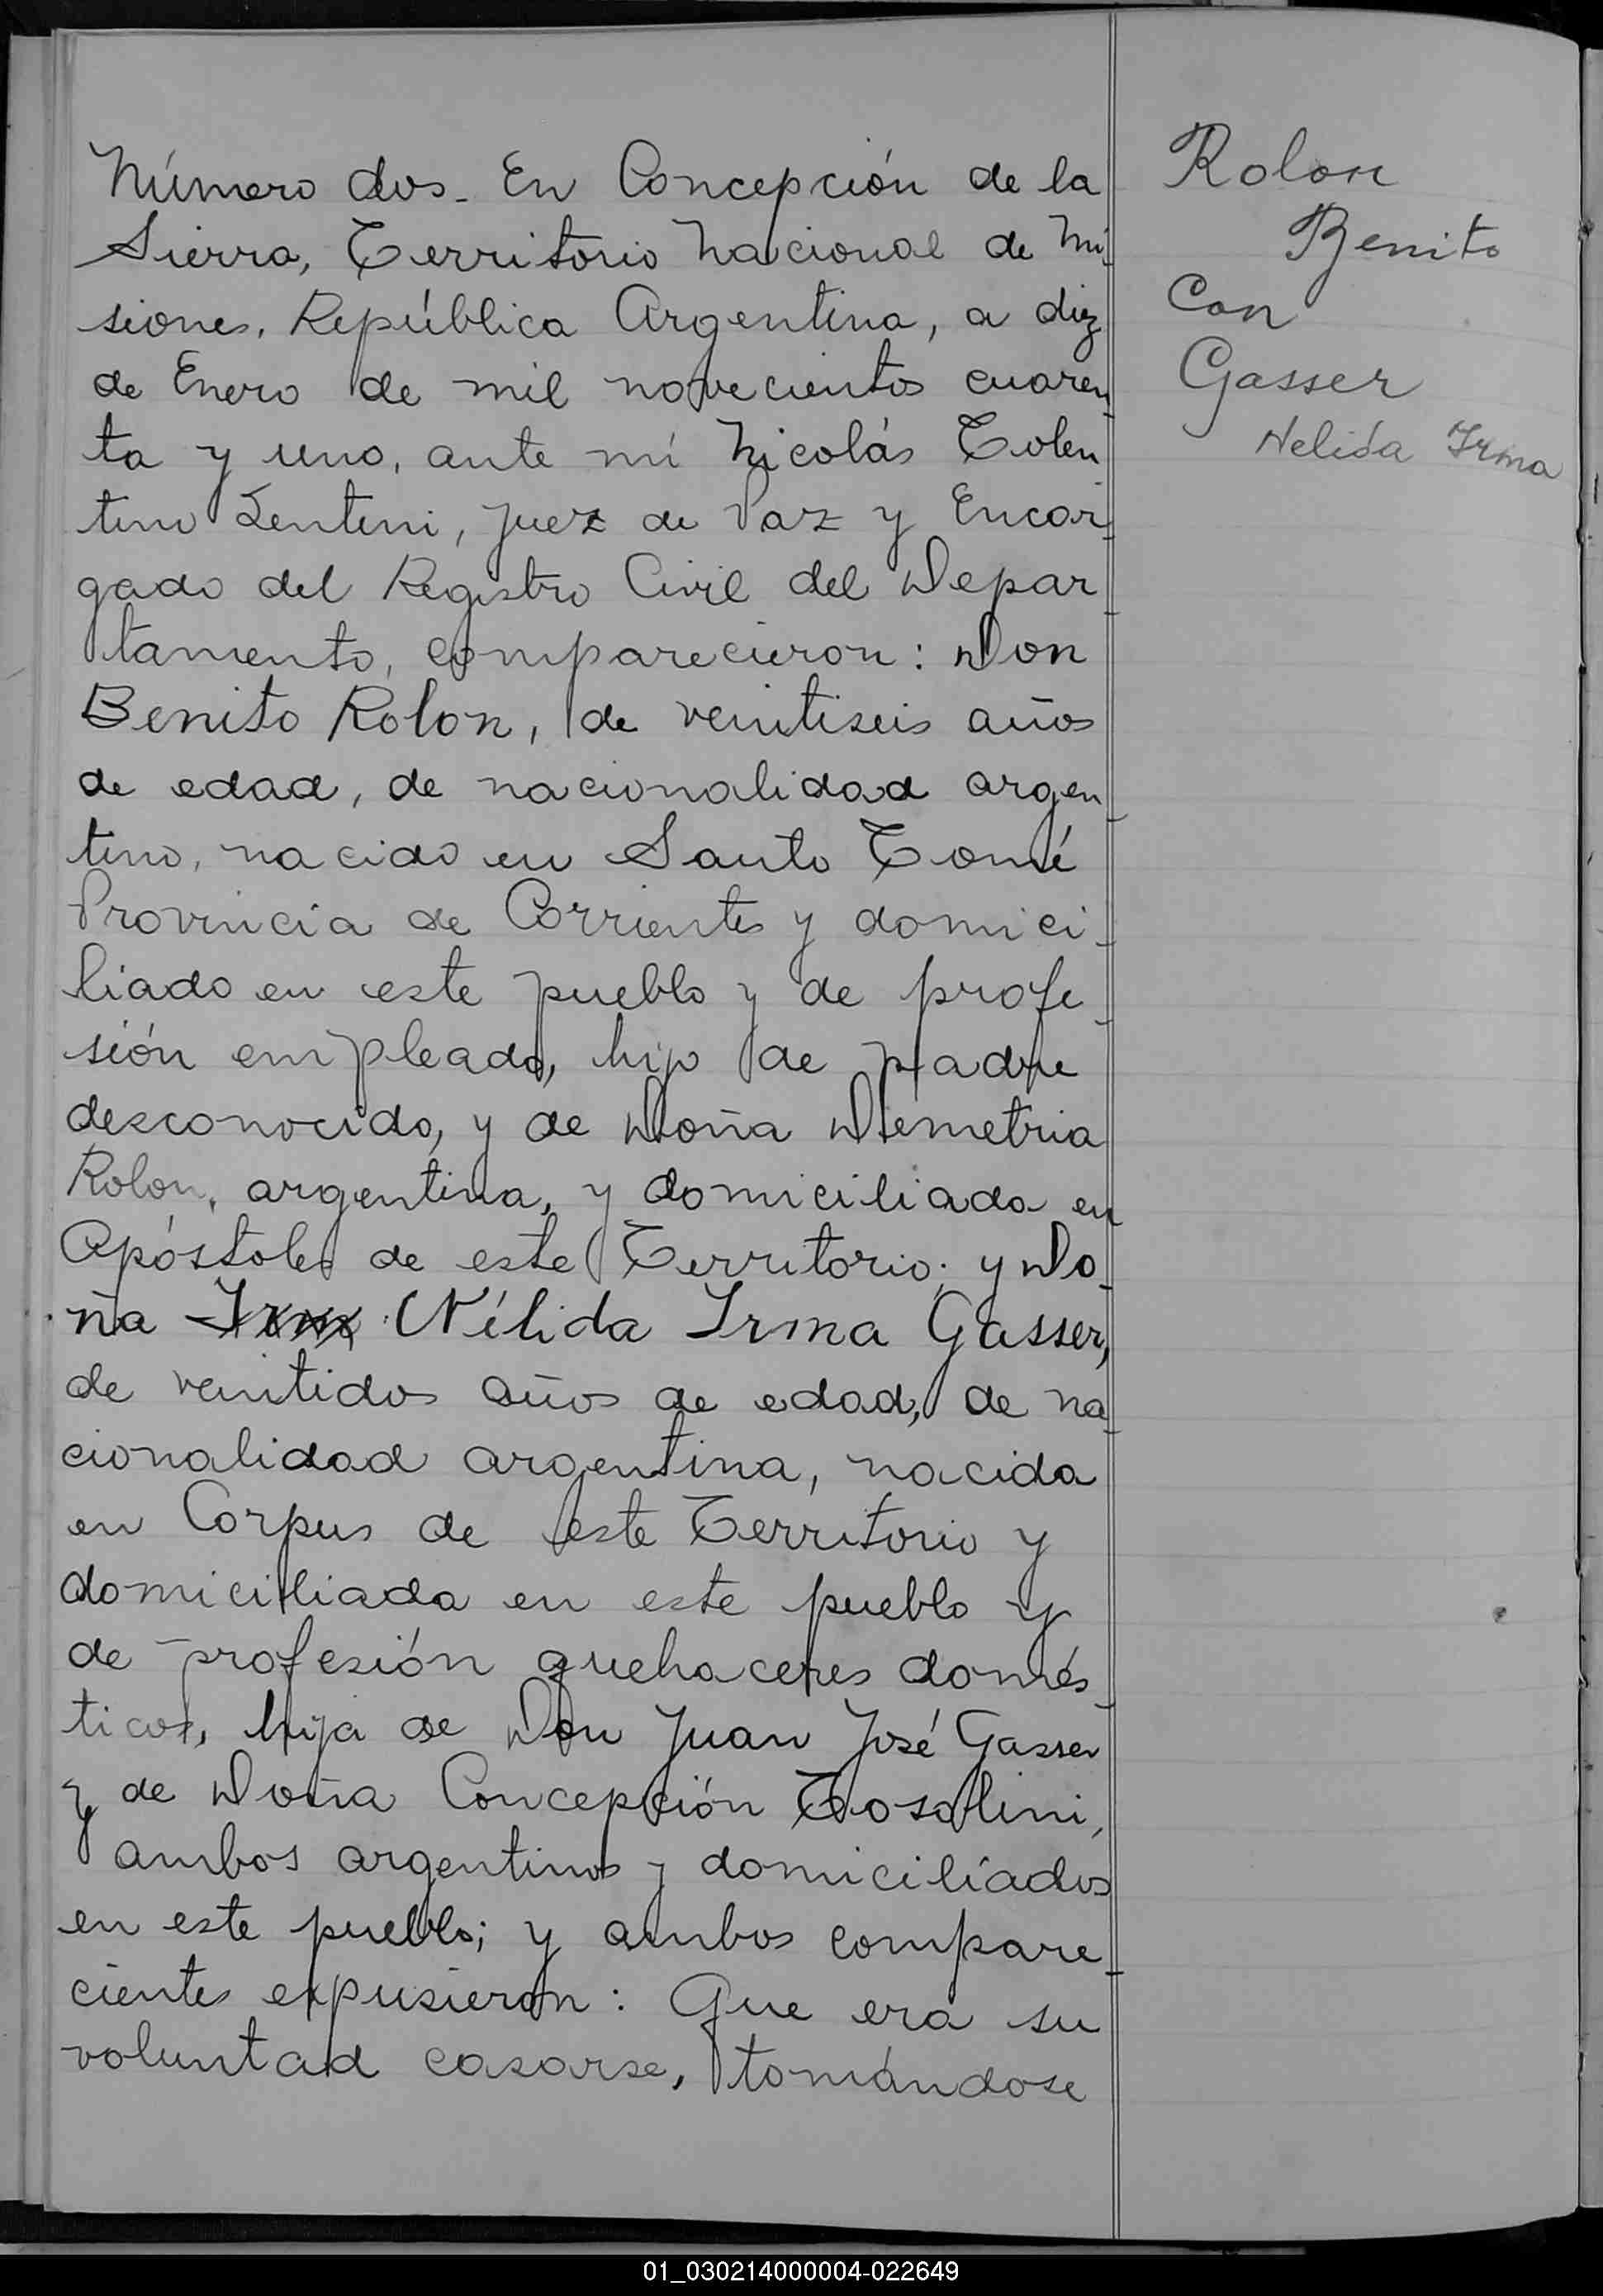 Número dos_ En Concepción de la
Sierra, Territorio Nacional de Mi_
siones, República Argentina, a diez
de Enero de mil novecientos cuaren_
ta y uno, ante mí Nicolás Tolen_
tino Lentini, Juez de Paz y Encar_
gado del Registro Civil del Depar_
tamento, comparecieron: Don
Benito Rolon, de veintiseis años
de edad, de nacionalidad argen_
tino, nacido en Santo Tomé
Provincia de Corrientes y domici_
liado en este pueblo y de profe_
sión empleado, hijo de padre
desconocido, y de Doña Demetria
Rolon, argentina, y domiciliada en
Apóstoles de este Territorio; y Do_
ña Irma Nélida Irma Gasser,
de veintidos años de edad, de na_
cionalidad argentina, nacida
en Corpus de este Territorio y
domiciliada en este pueblo y
de profesión quehaceres domés_
ticos, hija de Don Juan José Gasser
y de Doña Concepción Tosolini,
ambos argentinos y domiciliados
en este pueblo; y ambos compare_
cientes expusieron: Que era su
voluntad casarse, tomándose
Rolon
Benito
Con
Gasser
Nelida Irma
01_030214000004-022649